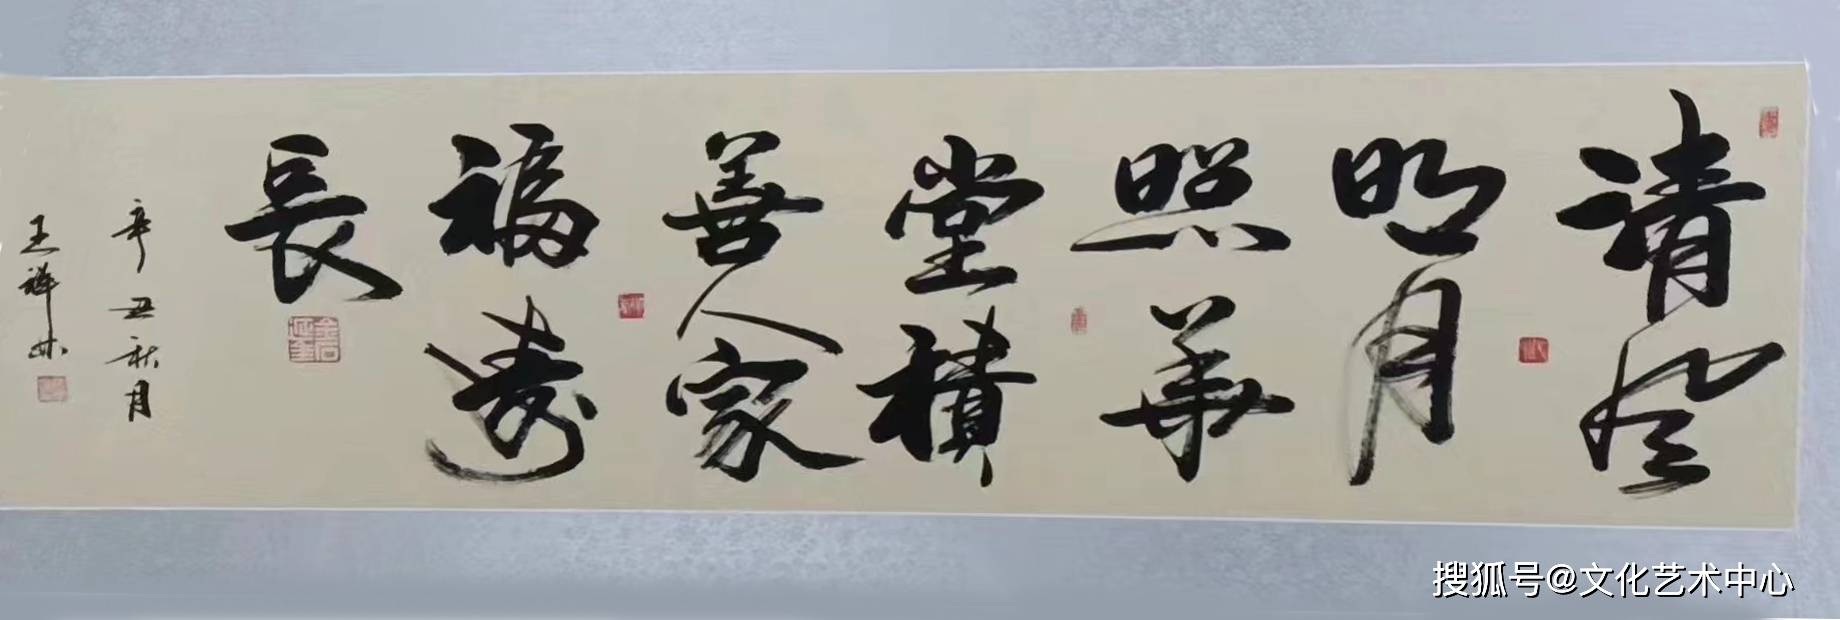 清风
明月
照华
堂積
善人家
福寿
長
辛丑秋月
王祥林
搜狐号@文化艺术中心